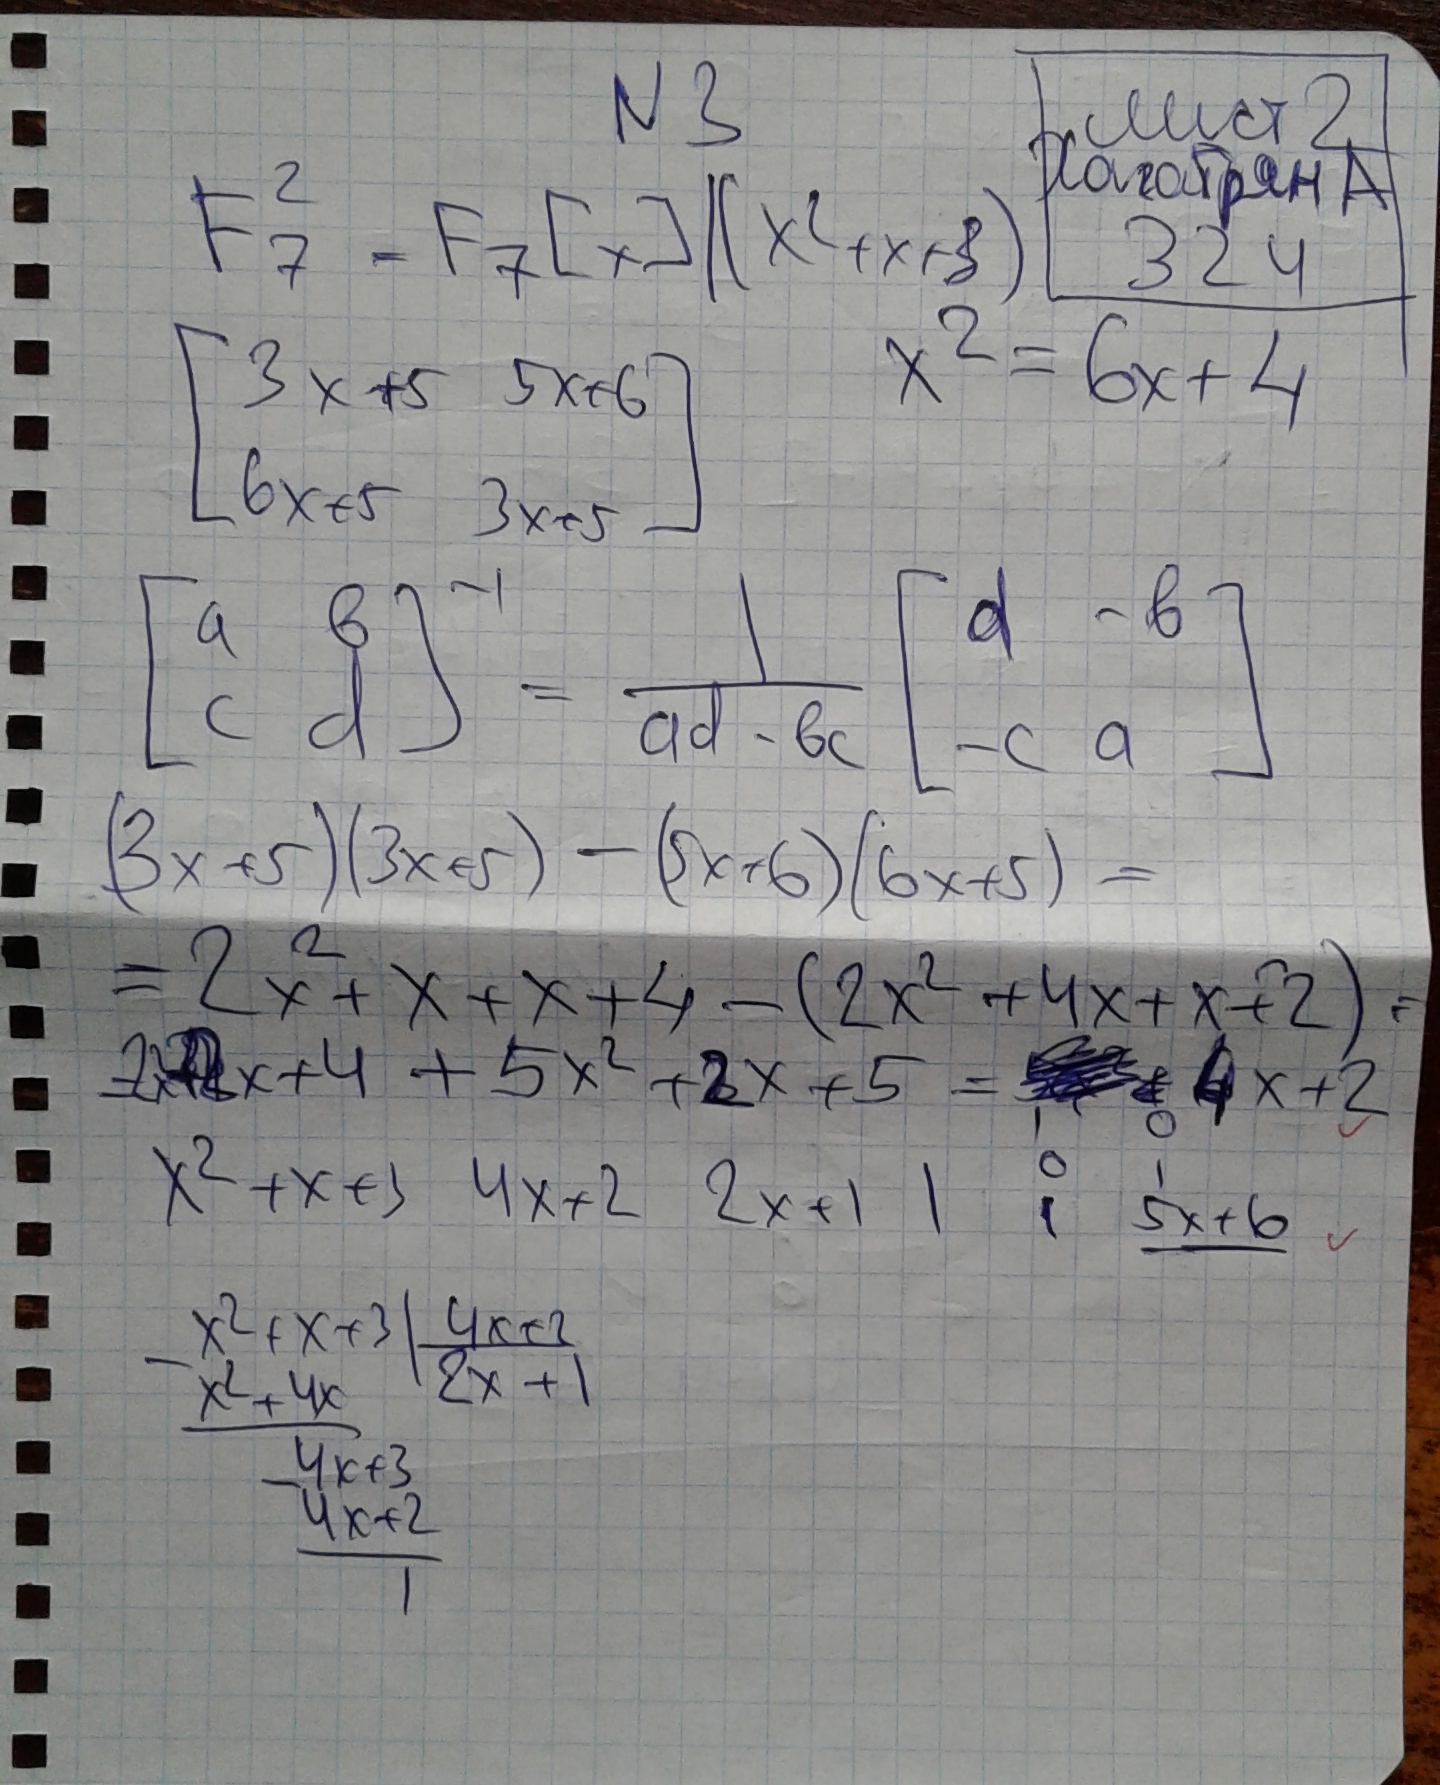 N 3
Лист 2
Хачатрян А
324
F₇² = F₇[x]/(x²+x+3)
x² = 6x+4
[3x+5 5x+6
6x+5 3x+5]
[a b
c d]⁻¹ = 1/(ad - bc) [d -b
-c a]
(3x+5)(3x+5) - (5x+6)(6x+5) =
= 2x² + x + x + 4 - (2x² + 4x + x + 2) =
2x + 4 + 5x² + 2x + 5 = 4x + 2
1 0
0 1
x² + x + 3 4x+2 2x+1 1 1 5x+6
x² + x + 3 | 4x+2
- x² + 4x | 2x + 1
4x+3
- 4x+2
1